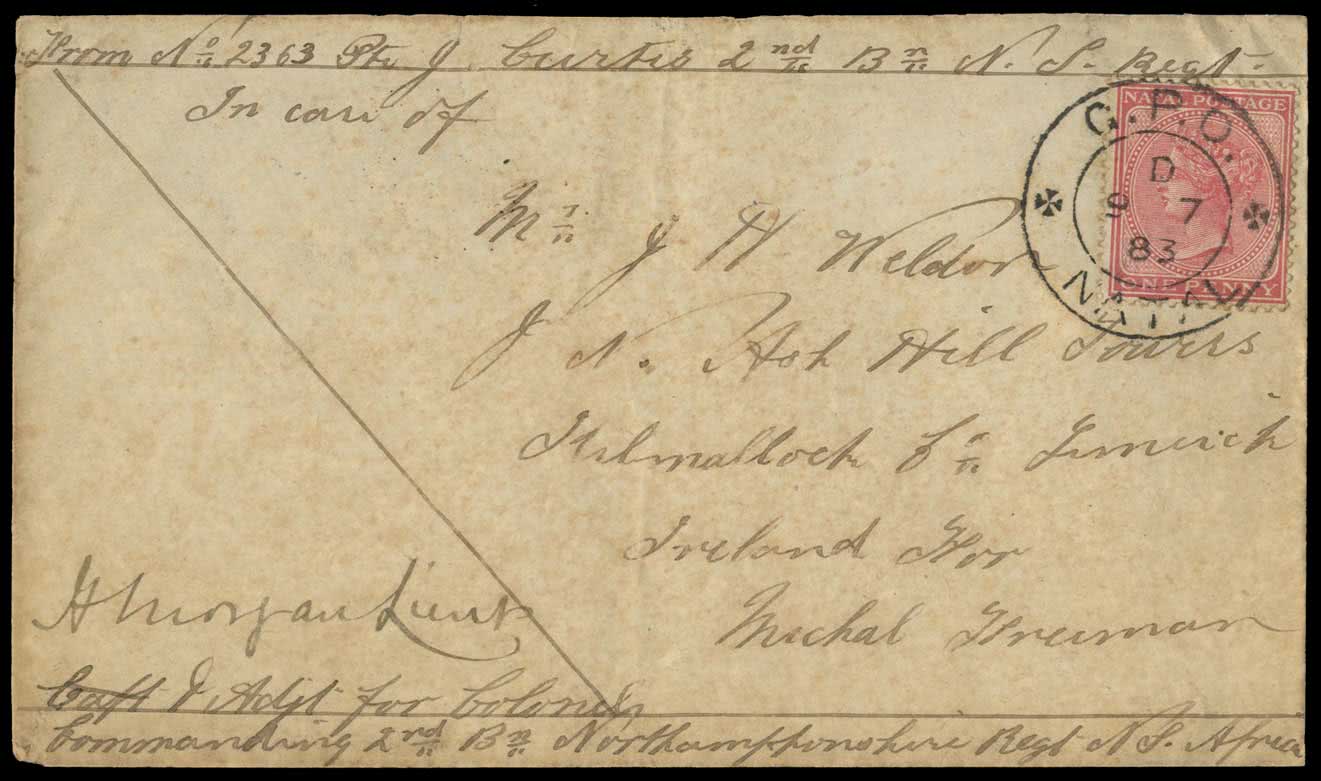 From No 2363 Pte J. Curtis 2nd Bn N. S. Regt.
In care of
NATAL POSTAGE
G.P.O.
D
9 7
83
NATAL
ONE PENNY
Mr J H Weldon
J N. Ash Hill Towers
Kilmallock Co Limrich
Ireland For
Michal Freeman
H Morgan Lieut
Capt & Adjt for Colonel
Commanding 2nd Bn Northamptonshire Regt N S. Africa